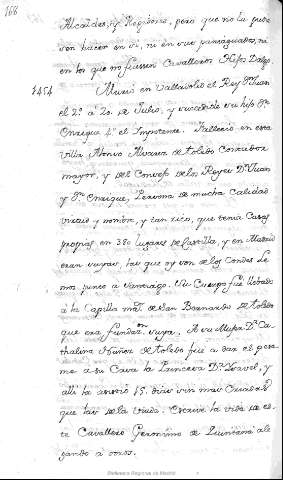 166
Alcaldes, y Regidores, pero que no la pudie
ron hacer en sí, ni en sus paniaguados, ni
en los que no fuessen Cavalleros Hijos Dalgo.
1454 Murió en Valladolid el Rey Dn. Juan
el 2º à 20. de Julio, y succedió su hijo Dn.
Enrique 4º el Impotente. Fallecio en esta
villa Alonso Alvarez de toledo Contador
mayor, y del Consejo de los Reyes Dn. Juan
y Dn. Enrique, Persona de mucha Calidad
virtud y nombre, y tan rico, que tenia Casas
propias en 380 lugares de Castilla, y en Madrid
eran suyas, las que oy son de los Condes de
mos junto à Santiago. Su Cuerpo fué llebado
à la Capilla maȳ. de San Bernardo de toledo
que era fundon. suya. A su Muger Da. Ca-
thalina Nuñez de toledo fué à dar el pesa
me à su Casa la Princesa Da. Isavel, y
alli la assistió 15. dias sin mas Criados
que los de la viuda. Escrive la vida de es-
te Cavallero Geronimo de Quintana ale
gando à otros.
Biblioteca Regional de Madrid